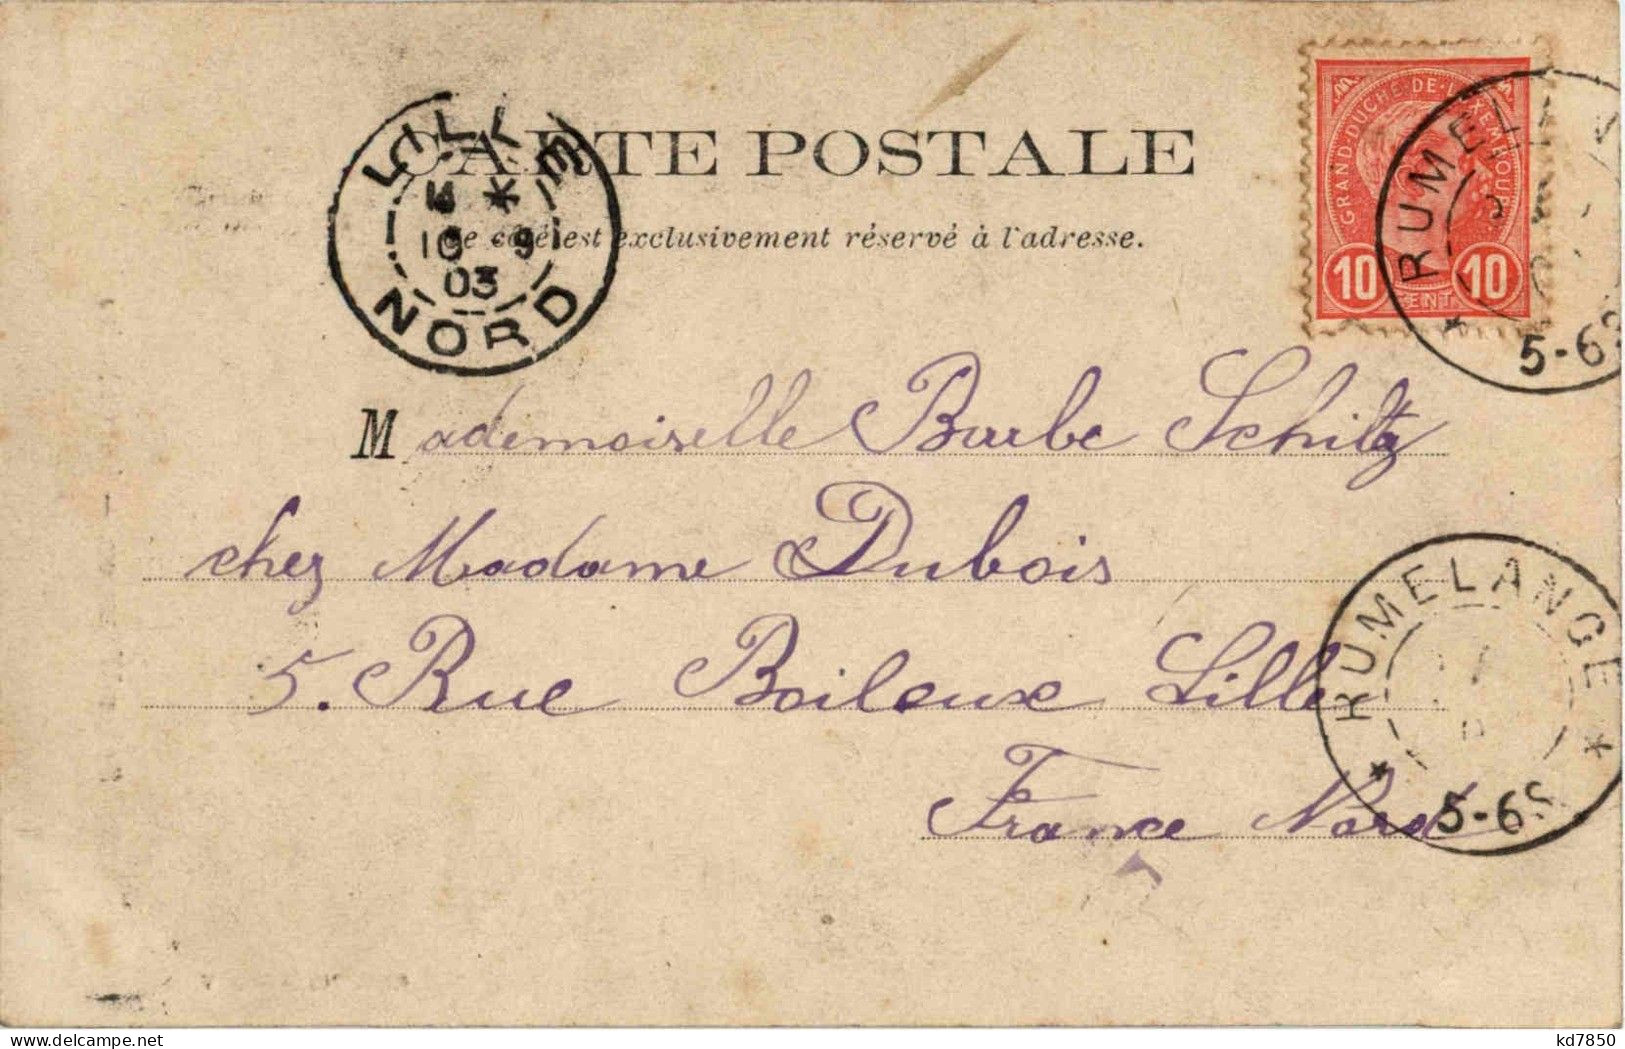 CARTE POSTALE
Ce côté est exclusivement réservé à l'adresse.
LILLE
10 9
03
NORD
GRAND-DUCHÉ-DE-LUXEMBOURG
10 CENT. 10
RUMELAN
5-6S
Mademoiselle Barbe Schiltz
chez Madame Dubois
5. Rue Boileux Lille
France Nord
RUMELANGE
5-6S
kd7850